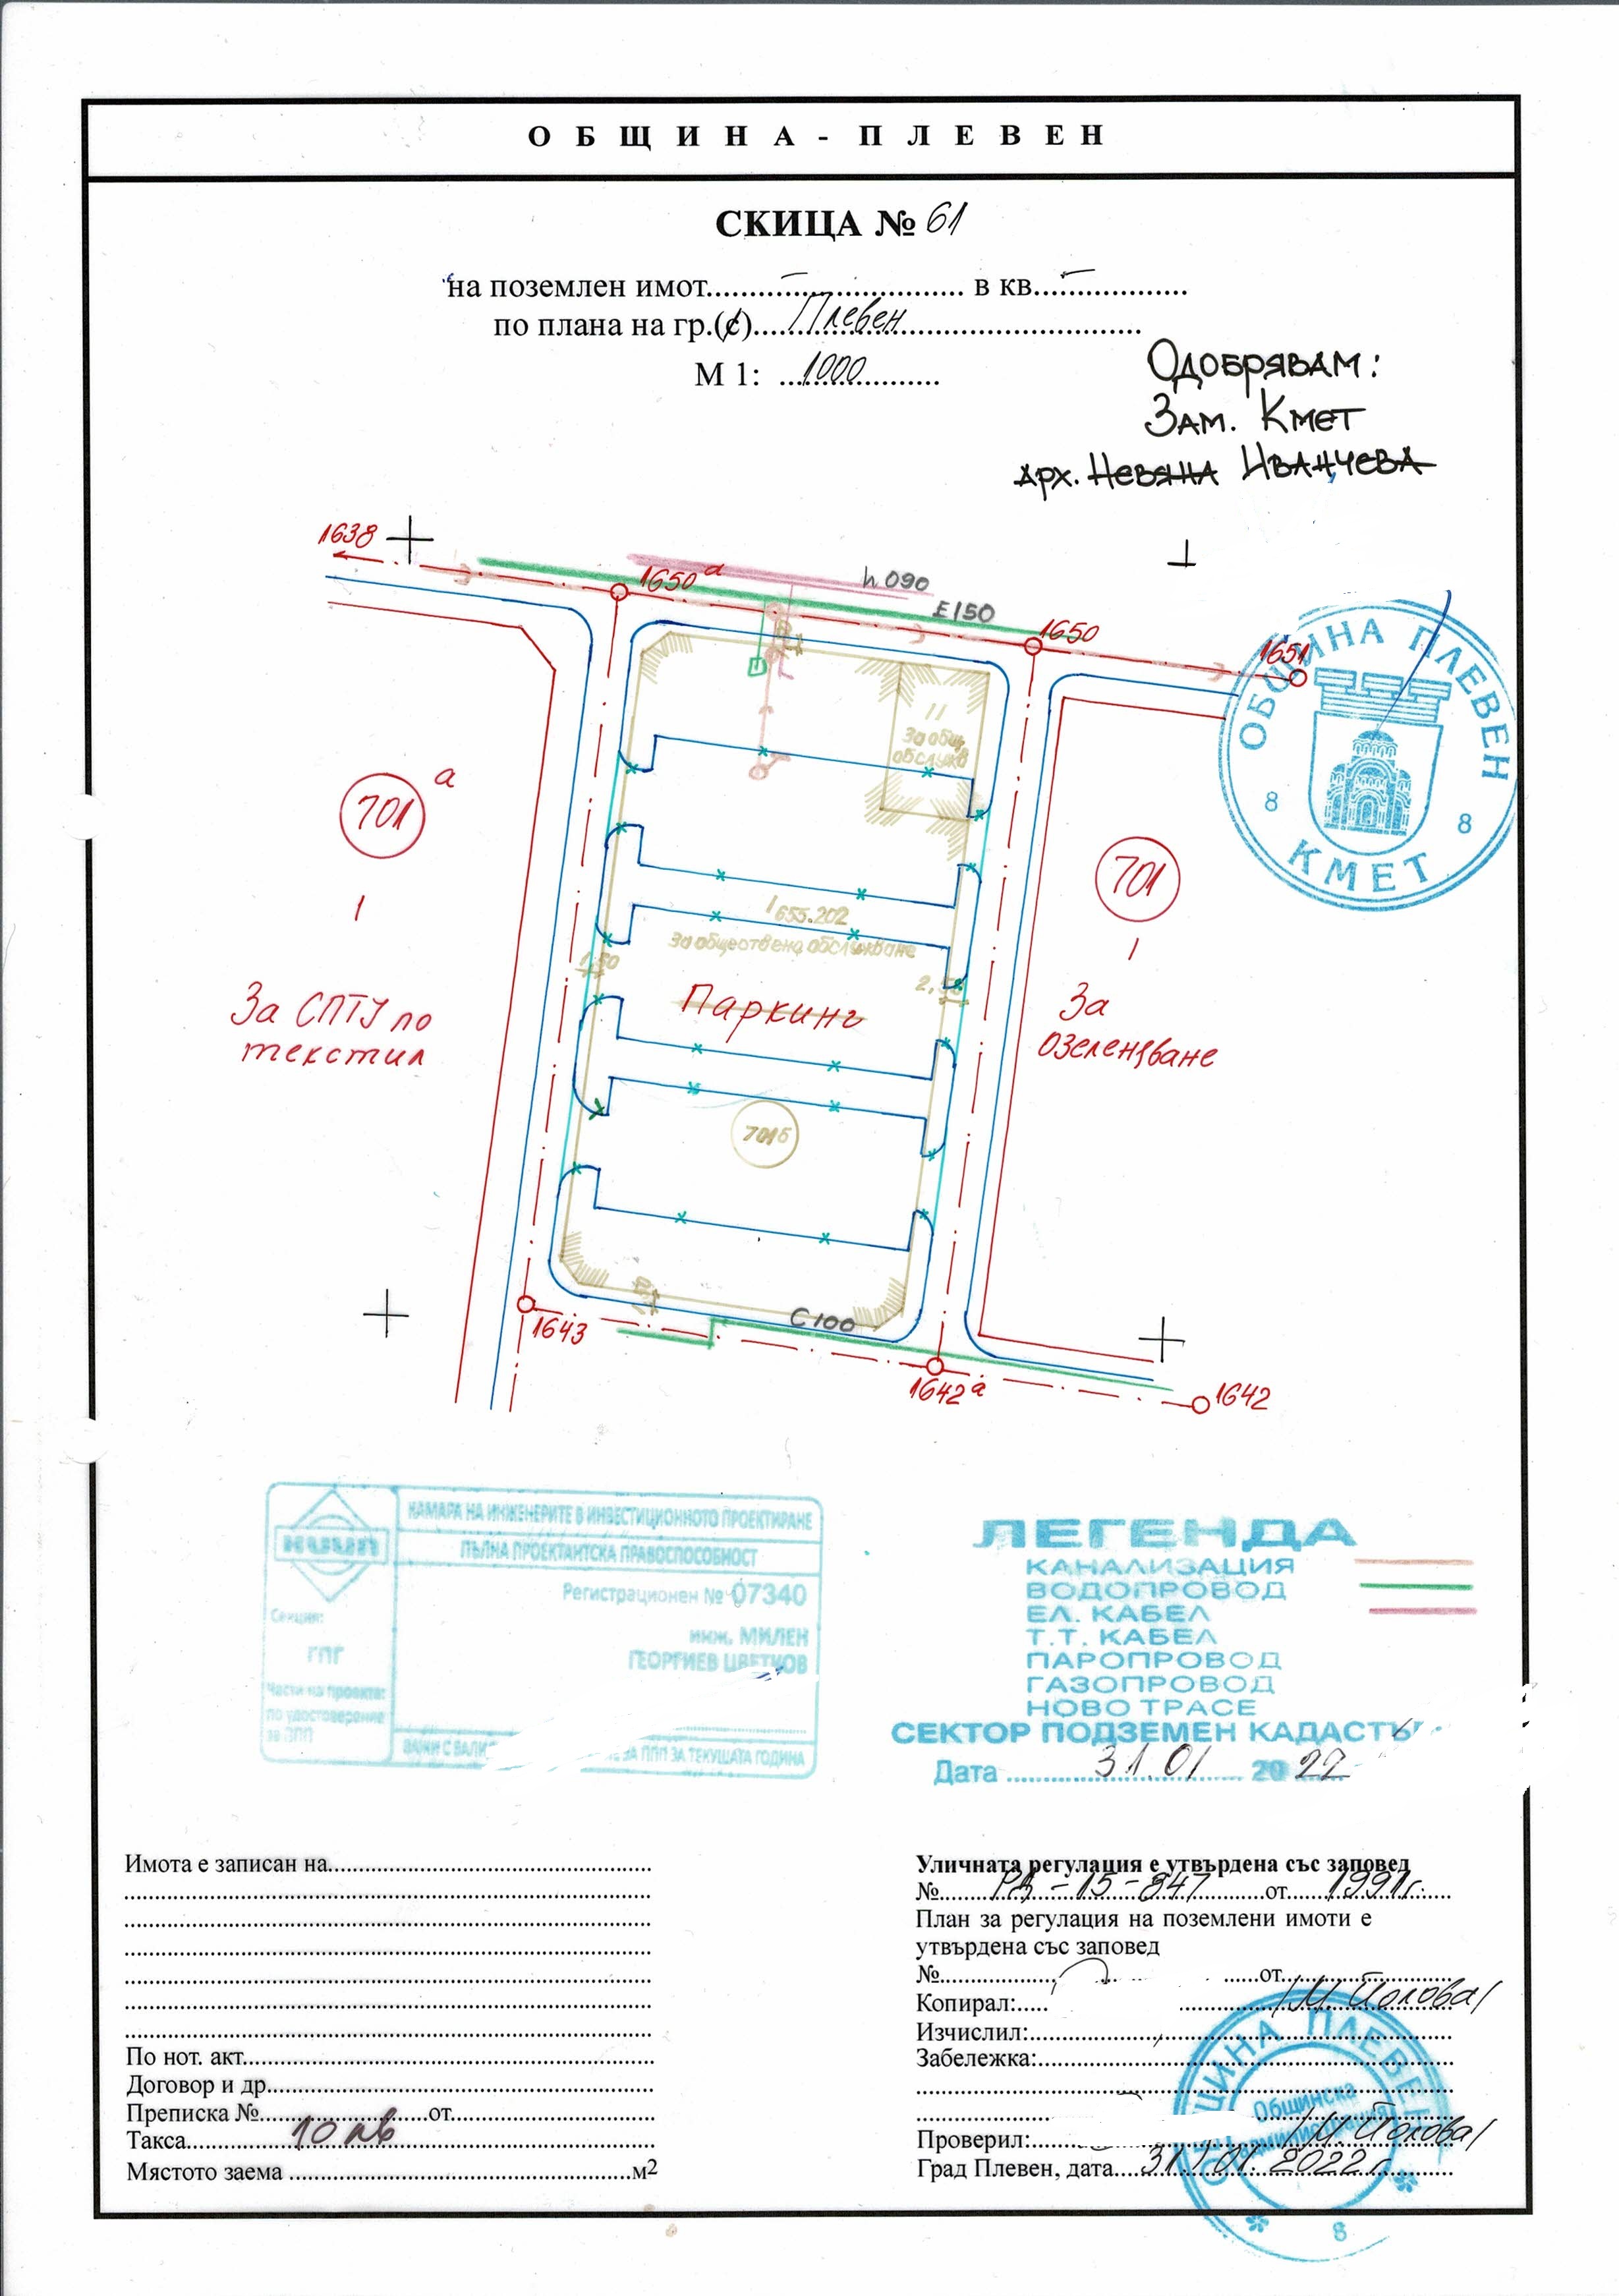 ОБЩИНА - ПЛЕВЕН
СКИЦА № 61
на поземлен имот.......................... в кв...................
по плана на гр.(с)....Плевен....
М 1: ...1000...
Одобрявам:
Зам. Кмет
арх. Невяна Иванчева
1638
1650 а
h 090
E150
1650
1651
ОБЩИНА ПЛЕВЕН
8 8
КМЕТ
II
За общ.
обслужв
701 а
I
За СПТУ по
текстил
I 655.202
За обществено обслужване
1,50
2,50
Паркинг
701б
701
I
За
озеленяване
C100
1643
1642 а
1642
КИИП
КАМАРА НА ИНЖЕНЕРИТЕ В ИНВЕСТИЦИОННОТО ПРОЕКТИРАНЕ
ПЪЛНА ПРОЕКТАНТСКА ПРАВОСПОСОБНОСТ
Регистрационен № 07340
Секция:
ГПГ
инж. МИЛЕН
ГЕОРГИЕВ ЦВЕТКОВ
Части на проекта:
по удостоверение
за ППП
ВАЖИ С ВАЛИ
ЗА ППП ЗА ТЕКУЩАТА ГОДИНА
ЛЕГЕНДА
КАНАЛИЗАЦИЯ
ВОДОПРОВОД
ЕЛ. КАБЕЛ
Т.Т. КАБЕЛ
ПАРОПРОВОД
ГАЗОПРОВОД
НОВО ТРАСЕ
СЕКТОР ПОДЗЕМЕН КАДАСТЪР
Дата ....31.01.... 2022
Имота е записан на..................
По нот. акт..................
Договор и др..................
Преписка №..................от..................
Такса....10 лв....
Мястото заема ..................м2
Уличната регулация е утвърдена със заповед
№....РД-15-847....от....1991г.
План за регулация на поземлени имоти е
утвърдена със заповед
№..................от..................
Копирал:.... /М. Йолова/
Изчислил:..................
Забележка:..................
Проверил:.... /М. Йолова/
Град Плевен, дата....31.01.2022г.
ОБЩИНА ПЛЕВЕН
Общинска
администрация
8